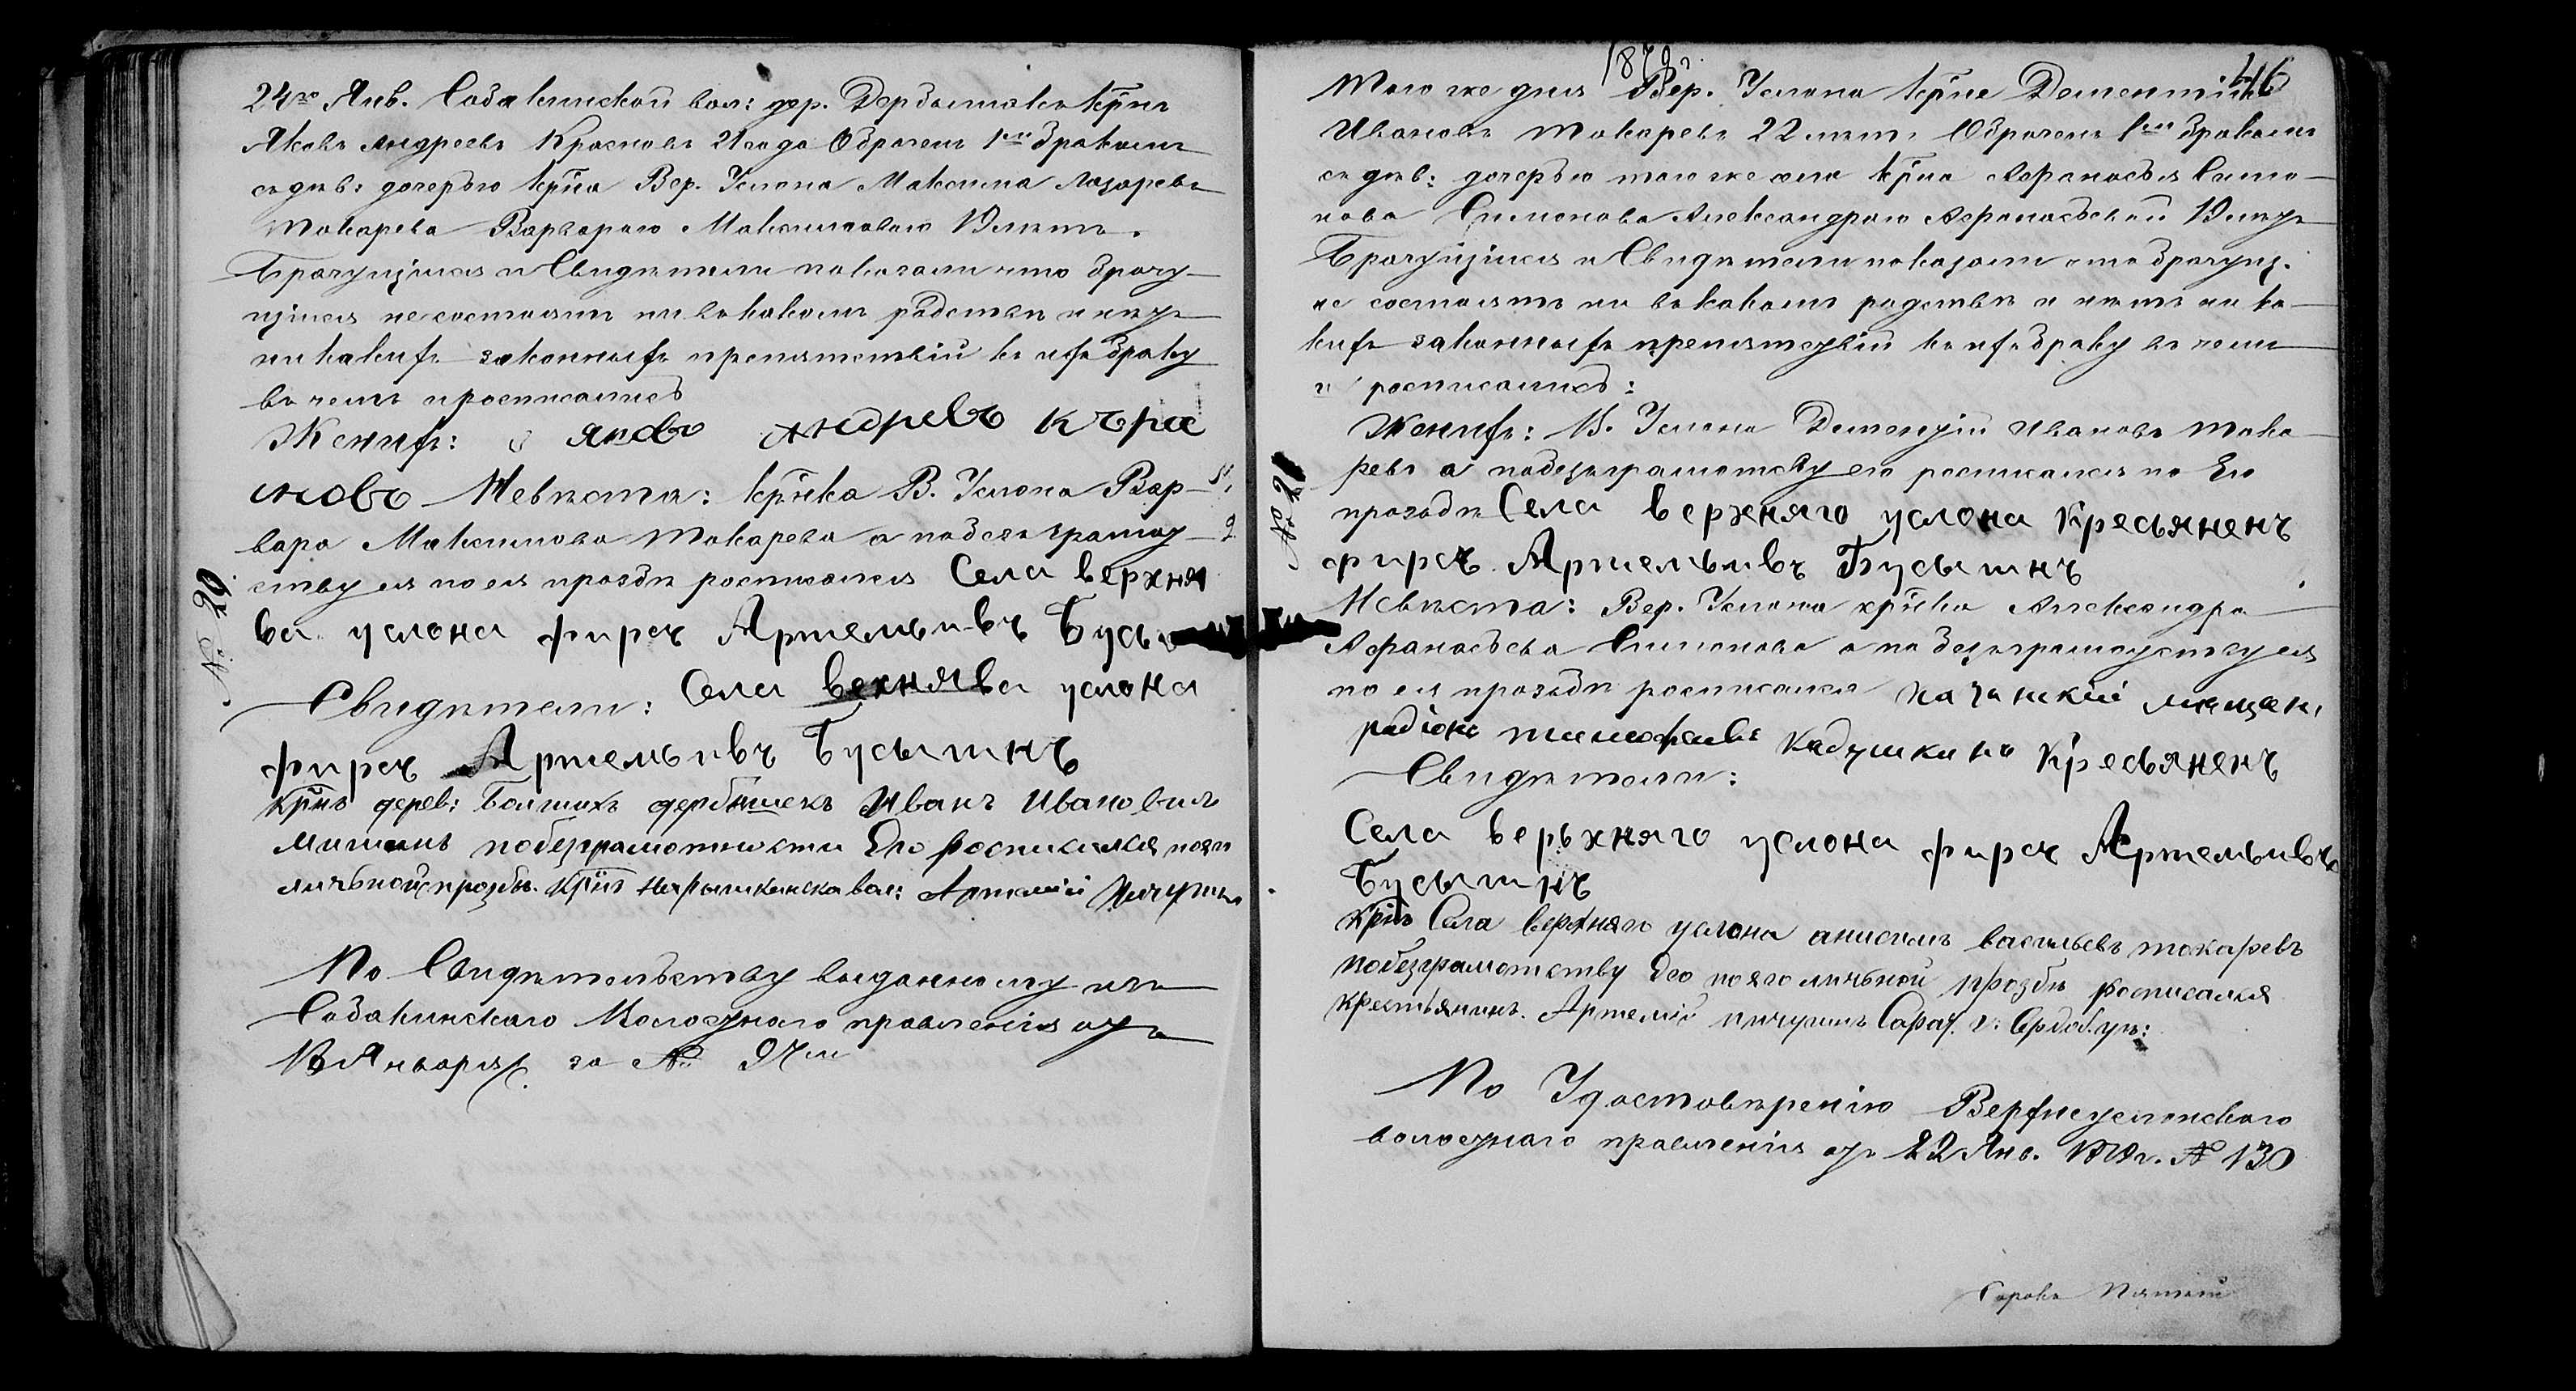 24го Янв. Собакинской вол: дер. Дербышковъ крнъ
Яковъ Андреевъ Красновъ 21 года Обрачен 1мъ бракомъ
съ дѣв: дочерью крна Вер. Услона Максима Лазарева
Токарева Варварою Максимовою 18 лѣтъ.
Брачущіися и Свидѣтели показали что брачу-
щіися не состоятъ ни въ какомъ родствѣ и нѣтъ
никакихъ законныхъ препятствій къ ихъ браку
въ чемъ и росписались
Женихъ: яковъ андревъ къра
сновъ Невѣста: крнка В. Услона Вар-
вара Максимова Токарева а по безграмот
ству ея по ея прозбѣ росписался Села верхня
ва услона фирсъ Артемьивъ Бусы
№ 20
Свидѣтели: Села верхнява услона
фирсъ Артемьивъ Бусыгинъ
крнъ дерев: Болшихъ дербышекъ Иванъ Ивановъ
Мишинъ побезграмотности Его росписался поего
личьной прозбѣ. крнъ Нарышкинска вол: Артемій Пичугинъ
По Свидѣтельству выданному изъ
Собакинскаго Волостнаго правленія отъ
18 Января за № 97мъ
1879г.
46
Того же дня Вер. Услона крнъ Дементій
Ивановъ Токаревъ 22 лѣтъ Обрачен 1мъ бракомъ
съ дѣв: дочерью того же села крна Афанасья Симо-
нова Симонова Александрою Афанасьевой 18 лѣтъ
Брачущіися и Свидѣтели показали что брачущ.
не состоятъ ни въ какомъ родствѣ и нѣтъ ни ка-
кихъ законныхъ препятствій къ ихъ браку въ чемъ
и росписались:
Женихъ: В. Услона Дементій Ивановъ Тока-
ревъ а по безграмотству его росписался по Его
прозьбѣ Села верхняго услона кресьяненъ
фирсъ Артемьивъ Бусыгинъ
№ 21
Невѣста: Вер. Услона крнка Александра
Афанасьева Симонова а по безграмотству ея
по ея прозьбѣ росписался казанскій мещан,
радіонъ тимофеивъ Кадушкинъ кресьяненъ
Свидѣтели:
Села верьхняго услона фирсъ Артемьивъ
Бусыгинъ
крнъ Села верхняго услона анисимъ васильевъ токаревъ
побезграмотству Его поего личьной прозбѣ росписался
крестьянинъ. Артемій пичугинъ Сарат. г: Сердоб. уѣ:
По Удостовѣренію Верхнеуслонскаго
волостнаго правленія отъ 22 Янв. 1879г. № 130
Сорокъ Пятый